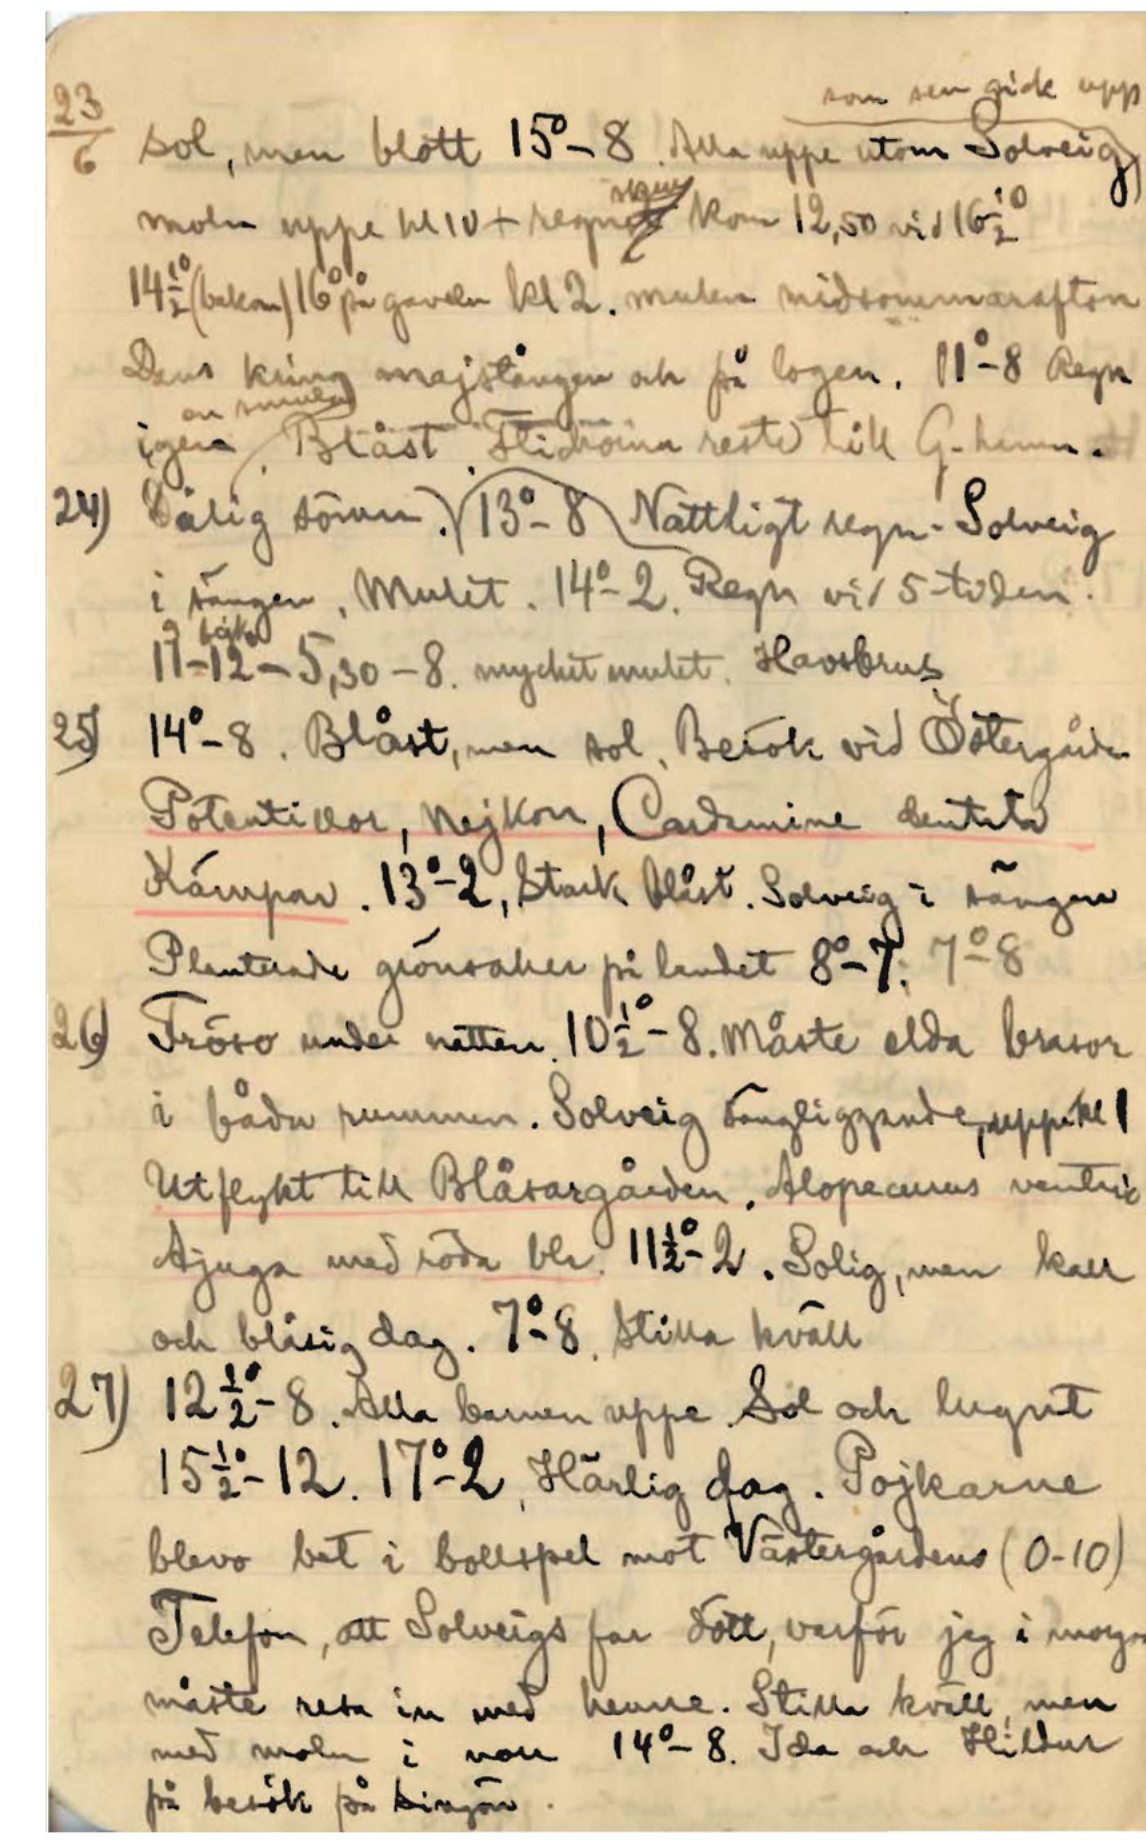 som sen gick upp
23/6 sol, men blott 15°-8. Alla uppe utom Solveig
moln uppe kl 10 + regn kom 12,50 vid 16½°
14½° 16° på gaveln kl 2. mulen midsommarafton
Dans kring majstången och på logen. 11°-8 Regn
en smula
igen. Blåst reste till G-hemm.
24) Dålig sömn. 13°-8 Nattligt regn - Solveig
i sängen. Mulet. 14°-2. Regn vid 5-tiden.
11-12 - 5,30 - 8. mycket mulet. Havsbrus
25) 14°-8. Blåst, men sol. Besök vid Östergården
Potentillor, Nejkon, Cardamine dentata
Kämpar. 13°-2, Stark blåst. Solveig i sängen
Planterade grönsaker på landet 8°-7. 7°-8
26) Fröso under natten. 10½°-8. Måste elda brasor
i båda rummen. Solveig sängliggande, uppe kl 1
Utflykt till Blåsargården. Alopecurus ventric
Ajuga med röda blr. 11½°-2. Solig, men kall
och blåsig dag. 7°-8. Stilla kväll
27) 12½°-8. Alla barnen uppe. Sol och lugnt
15½°-12. 17°-2, Härlig dag. Pojkarne
blevo bet i bollspel mot Västergårdens (0-10)
Telefon, att Solveigs far dött, varför jag i morgon
måste resa in med henne. Stilla kväll, men
med moln i norr 14°-8. Ida och Hildur
på besök på Singön.